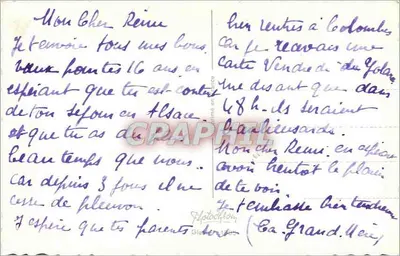 Mon Cher Rémi
Je t'envoie tous mes bons
vœux pour tes 16 ans. en
espérant que tu est content
de ton séjour en Alsace
et que tu as du
beau temps que nous.
car depuis 3 jours il ne
cesse de pleuvoir.
J'espère que tes parents sont
bien rentrés à Colombes
car je recevais une
carte Vendredi de Yolande
me disant que dans
48 h. ils seraient
banlieusards.
Mon cher Rémi, en espérant
avoir bientôt le plaisir
de te voir.
Je t'embrasse bien tendrement
(Ta Grand. Mère)
CPHOTO